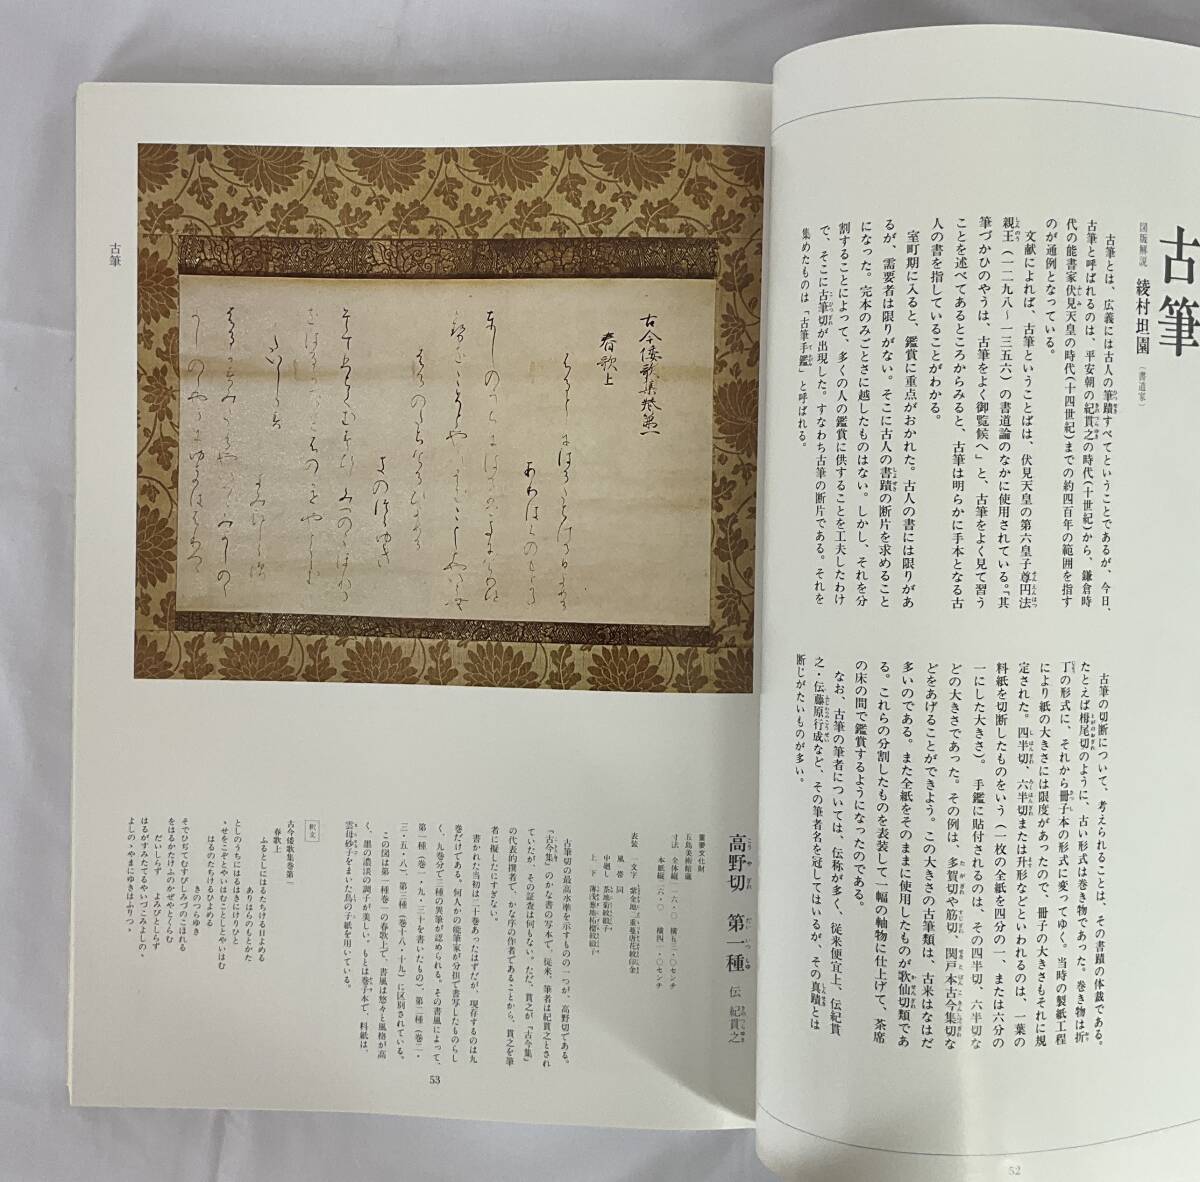 古筆
図版解説 綾村坦園(書道家)
古筆とは、広義には古人の筆蹟すべてということであるが、今日、
古筆と呼ばれるのは、平安朝の紀貫之の時代(十世紀)から、鎌倉時
代の能書家伏見天皇の時代(十四世紀)までの約四百年の範囲を指す
のが通例となっている。
文献によれば、古筆ということばは、伏見天皇の第六皇子尊円法
親王(一二九八〜一三五六)の書道論のなかに使用されている。「其
筆づかひのやうは、古筆をよく御覧候へ」と、古筆をよく見て習う
ことを述べてあるところからみると、古筆は明らかに手本となる古
人の書を指していることがわかる。
室町期に入ると、鑑賞に重点がおかれた。古人の書には限りがあ
るが、需要者は限りがない。そこに古人の書蹟の断片を求めること
になった。完本のみごとさに越したものはない。しかし、それを分
割することによって、多くの人の鑑賞に供することを工夫したわけ
で、そこに古筆切が出現した。すなわち古筆の断片である。それを
集めたものは「古筆手鑑」と呼ばれる。
古筆の切断について、考えられることは、その書蹟の体裁である。
たとえば栂尾切のように、古い形式は巻き物であった。巻き物は折
丁の形式に、それから冊子本の形式に変ってゆく。当時の製紙工程
により紙の大きさには限度があったので、冊子の大きさもそれに規
定された。四半切、六半切または升形などといわれるのは、一葉の
料紙を切断したものをいう(一枚の全紙を四分の一、または六分の
一にした大きさ)。手鑑に貼付されるのは、その四半切、六半切な
どの大きさであった。その例は、多賀切や筋切、関戸本古今集切な
どをあげることができよう。この大きさの古筆類は、古来はなはだ
多いのである。また全紙をそのままに使用したものが歌仙切類であ
る。これらの分割したものを表装して一幅の軸物に仕上げて、茶席
の床の間で鑑賞するようになったのである。
なお、古筆の筆者については、伝称が多く、従来便宜上、伝紀貫
之・伝藤原行成など、その筆者名を冠してはいるが、その真蹟とは
断じがたいものが多い。
52
古今倭歌集巻第一
春歌上
高野切 第一種 伝 紀貫之
重要文化財
五島美術館蔵
寸法 全体縦一一六・〇 横五三・〇センチ
本紙縦二六・〇 横四一・〇センチ
表装 一文字
風帯 同
中廻し
上下
古筆切の最高水準を示すものの一つが、高野切である。
『古今集』のかな書の写本で、従来、筆者は紀貫之とされ
ていたが、その証査は何もない。ただ、貫之が『古今集』
の代表的撰者で、かな序の作者であることから、貫之を筆
者に擬したにすぎない。
書かれた当初は二十巻あったはずだが、現存するのは九
巻だけである。何人かの能筆家が分担で書写したものらし
く、九巻分で三種の異筆が認められる。その書風によって、
第一種(巻一・九・二十を書いたもの)、第二種(巻二・
三・五・八)、第三種(巻十八・十九)に区別されている。
この図は第一種巻一の春歌上で、書風は悠々と風格が高
く、墨の濃淡の調子が美しい。もとは巻子本で、料紙は、
雲母砂子をまいた鳥の子紙を用いている。
釈文
古今倭歌集巻第一
春歌上
ふるとしにはるたちける日よめる
ありはらのもとかた
としのうちにはるはきにけりひと
ゝせをこぞとやいはむことしとやいはむ
はるのたちける日よめる
きのつらゆき
そでひぢてむすびしみづのこほれる
をはるかたけふのかぜやとくらむ
だいしらず よみびとしらず
はるがすみたてるやいづこみよしの
よしのゝやまにゆきはふりつゝ
53
古筆